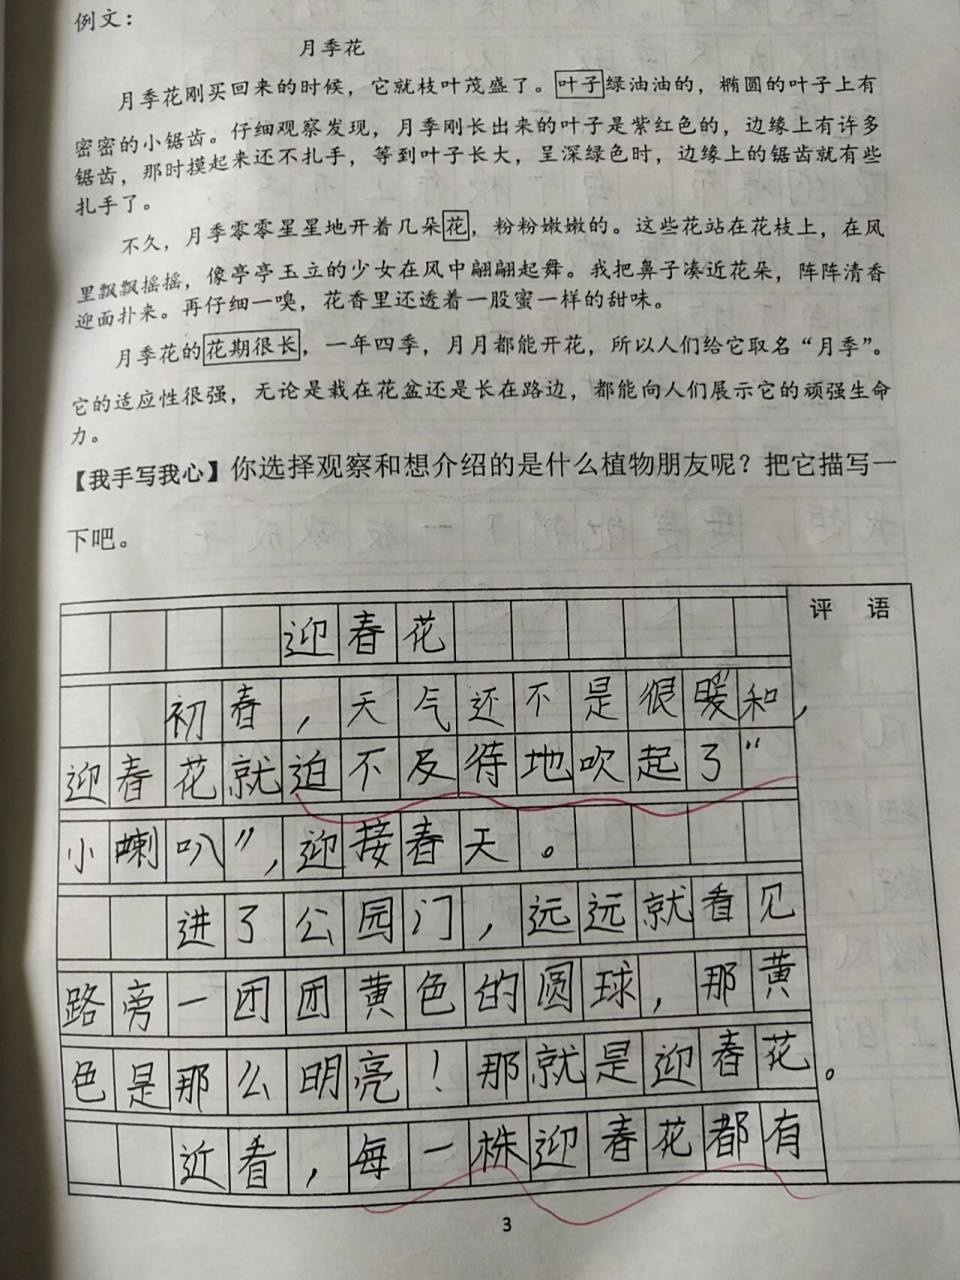 例文：
月季花
月季花刚买回来的时候，它就枝叶茂盛了。叶子绿油油的，椭圆的叶子上有
密密的小锯齿。仔细观察发现，月季刚长出来的叶子是紫红色的，边缘上有许多
锯齿，那时摸起来还不扎手，等到叶子长大，呈深绿色时，边缘上的锯齿就有些
扎手了。
不久，月季零零星星地开着几朵花，粉粉嫩嫩的。这些花站在花枝上，在风
里飘飘摇摇，像亭亭玉立的少女在风中翩翩起舞。我把鼻子凑近花朵，阵阵清香
迎面扑来。再仔细一嗅，花香里还透着一股蜜一样的甜味。
月季花的花期很长，一年四季，月月都能开花，所以人们给它取名“月季”。
它的适应性很强，无论是栽在花盆还是长在路边，都能向人们展示它的顽强生命
力。
【我手写我心】你选择观察和想介绍的是什么植物朋友呢？把它描写一
下吧。
评 语
迎春花
初春，天气还不是很暖和，
迎春花就迫不及待地吹起了“
小喇叭”，迎接春天。
进了公园门，远远就看见
路旁一团团黄色的圆球，那黄
色是那么明亮！那就是迎春花。
近看，每一株迎春花都有
3